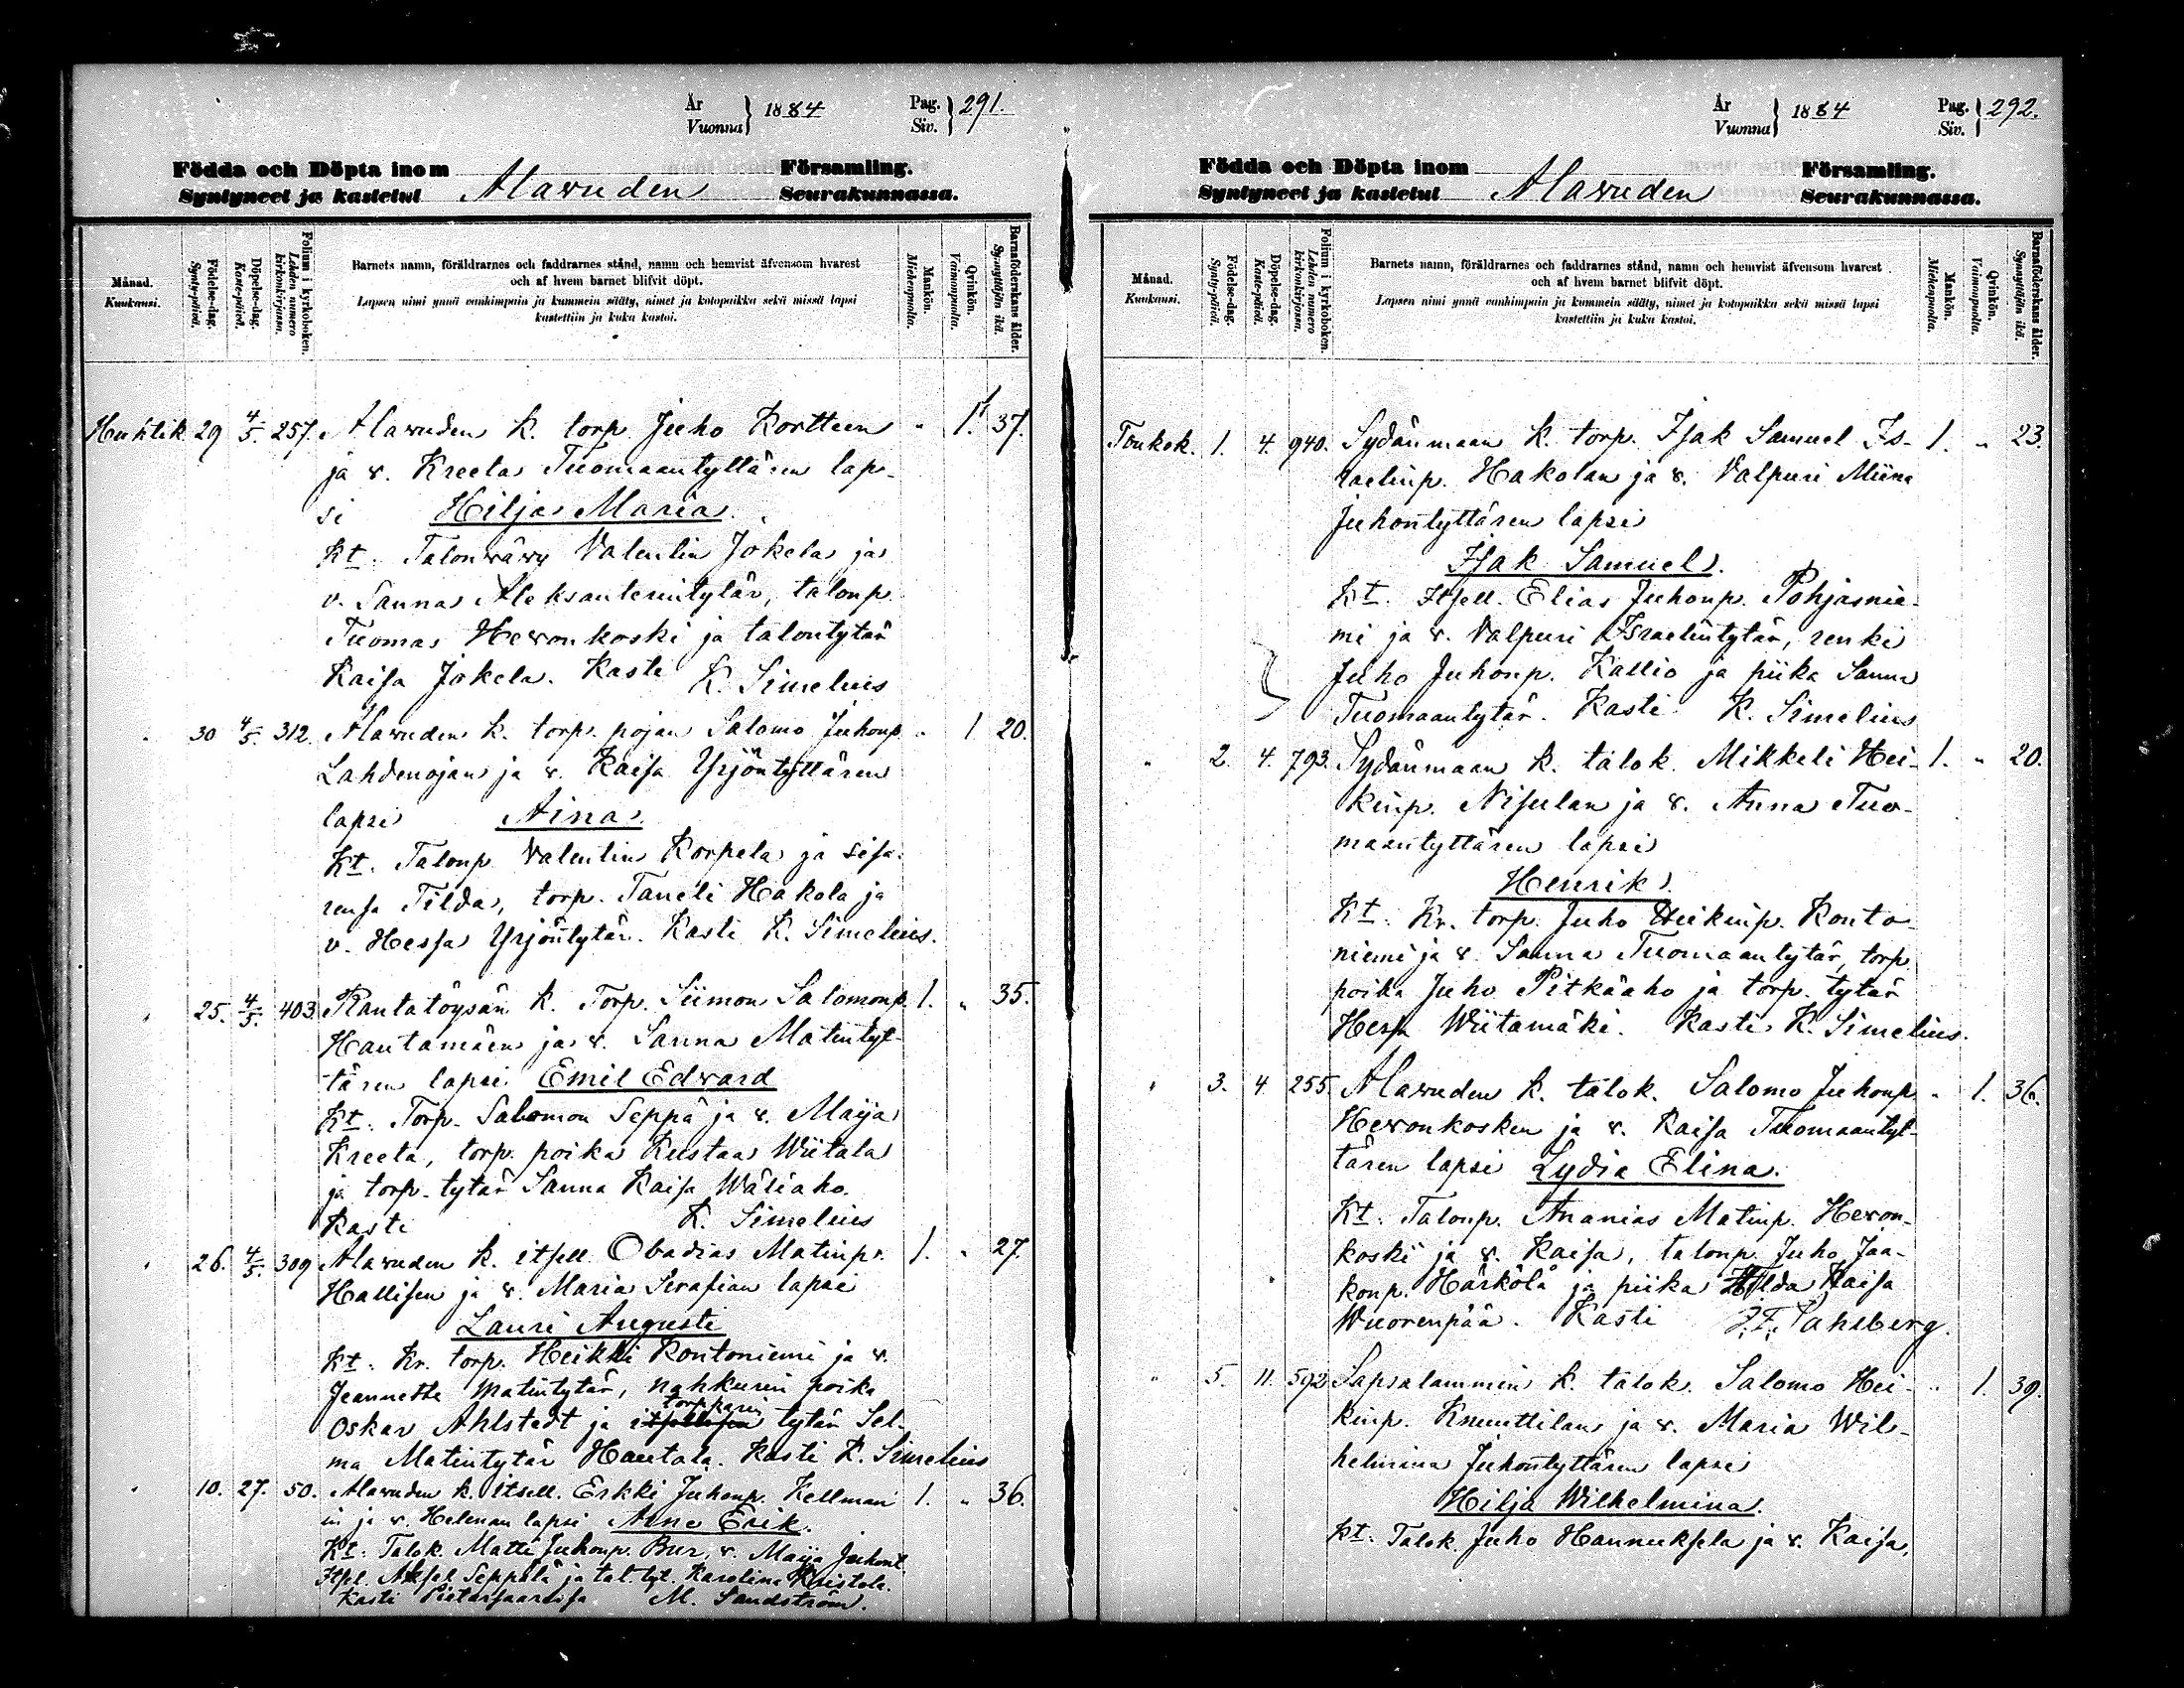 År
Vuonna } 1884 Pag.
Siv. } 291.
Födda och Döpta inom Församling.
Syntyneet ja kastetut Alavuden Seurakunnassa.
Månad.
Kuukausi.
Födelse-dag.
Synty-päivä.
Döpelse-dag.
Kaste-päivä.
Folium i kyrkoboken.
Lehden numero
kirkonkirjassa.
Barnets namn, föräldrarnes och faddrarnes stånd, namn och hemvist äfvensom hvarest
och af hvem barnet blifvit döpt.
Lapsen nimi ynnä vanhimpain ja kummein sääty, nimet ja kotopaikka sekä missä lapsi
kastettiin ja kuka kastoi.
Mankön.
Miehenpuolta.
Qvinkön.
Vaimonpuolta.
Barnaföderskans ålder.
Synnyttäjän ikä.
Huhtik. 29 4/5. 257. Alavuden k. torp. Juho Kortteen " 1. 37.
ja v. Kreeta Tuomaantyttären lap-
si Hilja Maria.
Kt. Talonvävy Valentin Jokela ja
v. Sanna Aleksanterintytär, talonp.
Tuomas Hevonkoski ja talontytär
Kaisa Jokela. Kasti K. Simelius
" 30 4/5. 312. Alavuden k. torp. pojan Salomo Juhonp. " 1 20.
Lahdenojan ja v. Kaisa Yrjöntyttären
lapsi Aina.
Kt. Talonp. Valentin Korpela ja sisa-
rensa Tilda, torp. Taneli Hakola ja
v. Hessa Yrjöntytär. Kasti K. Simelius.
" 25. 4/5. 403. Rantatöysän k. Torp. Siimon Salomonp. 1. " 35.
Hautamäen ja v. Sanna Matintyt-
tären lapsi Emil Edvard
Kt. Torp. Salomon Seppä ja v. Maija
Kreeta, torp. poika Kustaa Wiitala
ja torp. tytär Sanna Kaisa Wäliaho.
Kasti K. Simelius
" 26. 4/5. 309 Alavuden k. itsell. Obadias Matinp. 1. " 27.
Hallisen ja v. Maria Serafian lapsi
Lauri Augusti
Kt. Kr. torp. Heikki Kontoniemi ja v.
Jeannette Matintytär, nahkurin poika
torpparin
Oskar Ahlstedt ja itsellisen tytär Sel-
ma Matintytär Hautala. Kasti K. Simelius
" 10. 27. 50. Alavuden k. itsell. Erkki Juhonp. Kellman 1. " 36.
in ja v. Helenan lapsi Arne Erik.
Kt. Talok. Matti Juhonp. Bur, v. Maija Juhont.
Itsel. Aksel Seppälä ja tal. tyt. Karolina Knistola.
Kasti Pietarsaaressa M. Sandström.
År
Vuonna } 1884 Pag.
Siv. } 292.
Födda och Döpta inom Församling.
Syntyneet ja kastetut Alavuden Seurakunnassa.
Månad.
Kuukausi.
Födelse-dag.
Synty-päivä.
Döpelse-dag.
Kaste-päivä.
Folium i kyrkoboken.
Lehden numero
kirkonkirjassa.
Barnets namn, föräldrarnes och faddrarnes stånd, namn och hemvist äfvensom hvarest
och af hvem barnet blifvit döpt.
Lapsen nimi ynnä vanhimpain ja kummein sääty, nimet ja kotopaikka sekä missä lapsi
kastettiin ja kuka kastoi.
Mankön.
Miehenpuolta.
Qvinkön.
Vaimonpuolta.
Barnaföderskans ålder.
Synnyttäjän ikä.
Toukok. 1. 4. 940. Sydänmaan k. torp. Isak Samuel Is- 1. " 23.
raelinp. Hakolan ja v. Valpuri Miina
Juhontyttären lapsi
Isak Samuel.
Kt. Itsell. Elias Juhonp. Pohjasnie-
mi ja v. Valpuri Israelintytär, renki
Juho Juhonp. Kallio ja piika Sanna
Tuomaantytär. Kasti K. Simelius
" 2. 4. 793. Sydänmaan k. talok. Mikkeli Hei- 1. " 20.
kinp. Nisulan ja v. Anna Tuo-
maantyttären lapsi
Henrik.
Kt. Kr. torp. Juho Heikinp. Konto-
niemi ja v. Sanna Tuomaantytär, torp.
poika Juho Pitkäaho ja torp. tytär
Hessa Wiitamäki. Kasti K. Simelius.
" 3. 4 255. Alavuden k. talok. Salomo Juhonp. " 1. 36.
Hevonkosken ja v. Kaisa Tuomaantyt-
tären lapsi Lydia Elina.
Kt. Talonp. Ananias Matinp. Hevon-
koski ja v. Kaisa, talonp. Juho Jaa-
konp. Härkölä ja piika Hilda Kaisa
Wuorenpää. Kasti J. F. Pahlberg.
" 5. 11. 592 Sapsalammin k. talok. Salomo Hei- " 1. 39.
kinp. Knuuttilan ja v. Maria Wil-
helmina Juhontyttären lapsi
Hilja Wilhelmina.
Kt. Talok. Juho Hannuksela ja v. Kaisa,